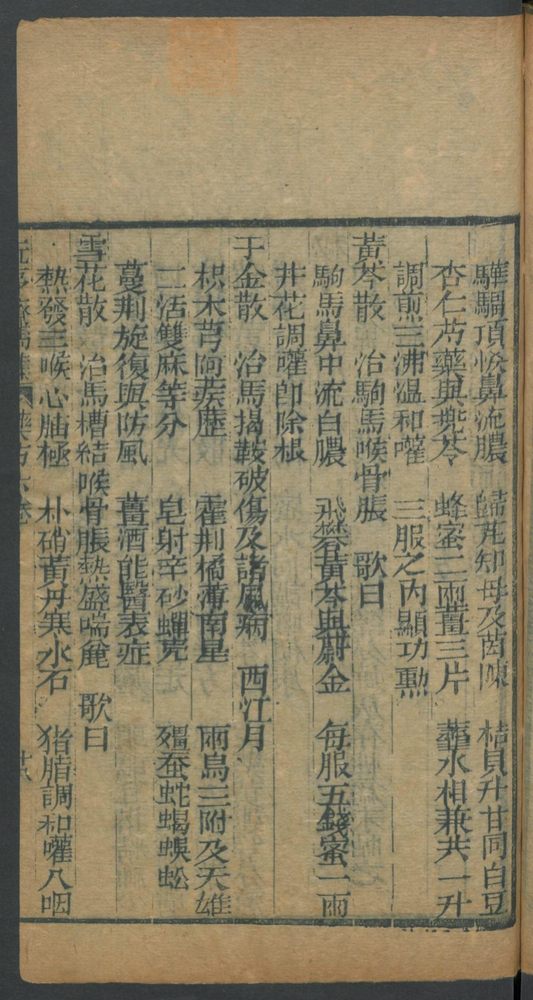 驊騮項恢鼻流膿 歸芄知母及茵陳 桔貝升甘同白豆
杏仁芍藥與兜苓 蜂蜜二兩薑三片 虀水相兼共一升
調煎三沸溫和嚾 三服之內顯功勲
黃芩散 治駒馬喉骨脹 歌曰
駒馬鼻中流白膿 飛礬黃芩與欝金 每服五錢蜜二兩
井花調嚾即除根
千金散 治馬揭鞍破傷及諸風病 西江月
枳木芎防蒺藶 霍荆橘薄南星 兩烏三附及天雄
二活雙麻等分 皂射辛砂蟬壳 殭蚕蛇蝎蜈蚣
蔓荆旋復與防風 薑酒能醫表症
雪花散 治馬槽結喉骨脹熱盛喘麄 歌曰
熱發三喉心肺極 朴硝黃丹寒水石 猪脂調和嚾八咽